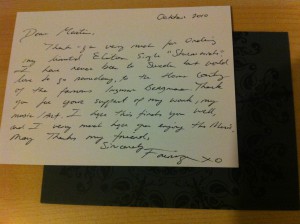 October 2010
Dear Martin,
Thank you very much for ordering
my limited Edition Single "
I have never been to Sweden but would
love to go someday, to the Home Country
of the famous Ingmar Bergman. Thank
you for your support of my work, my
music/art. I hope this finds you well,
and I very much hope you enjoy the Music.
Many Thanks my friend.
Sincerely
XO